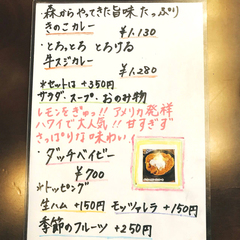 ・森からやってきた旨味たっぷり
きのこカレー
¥1.130
・とろ、とろ とろける
牛スジカレー
¥1.280
*セットは+350円
サラダ・スープ・おのみ物
レモンをぎゅっ!! アメリカ発祥
ハワイで大人気!! 甘すぎず
さっぱりな味わい
・ダッチベイビー
¥700
*トッピング
生ハム +150円 モッツァレラ +150円
季節のフルーツ +250円